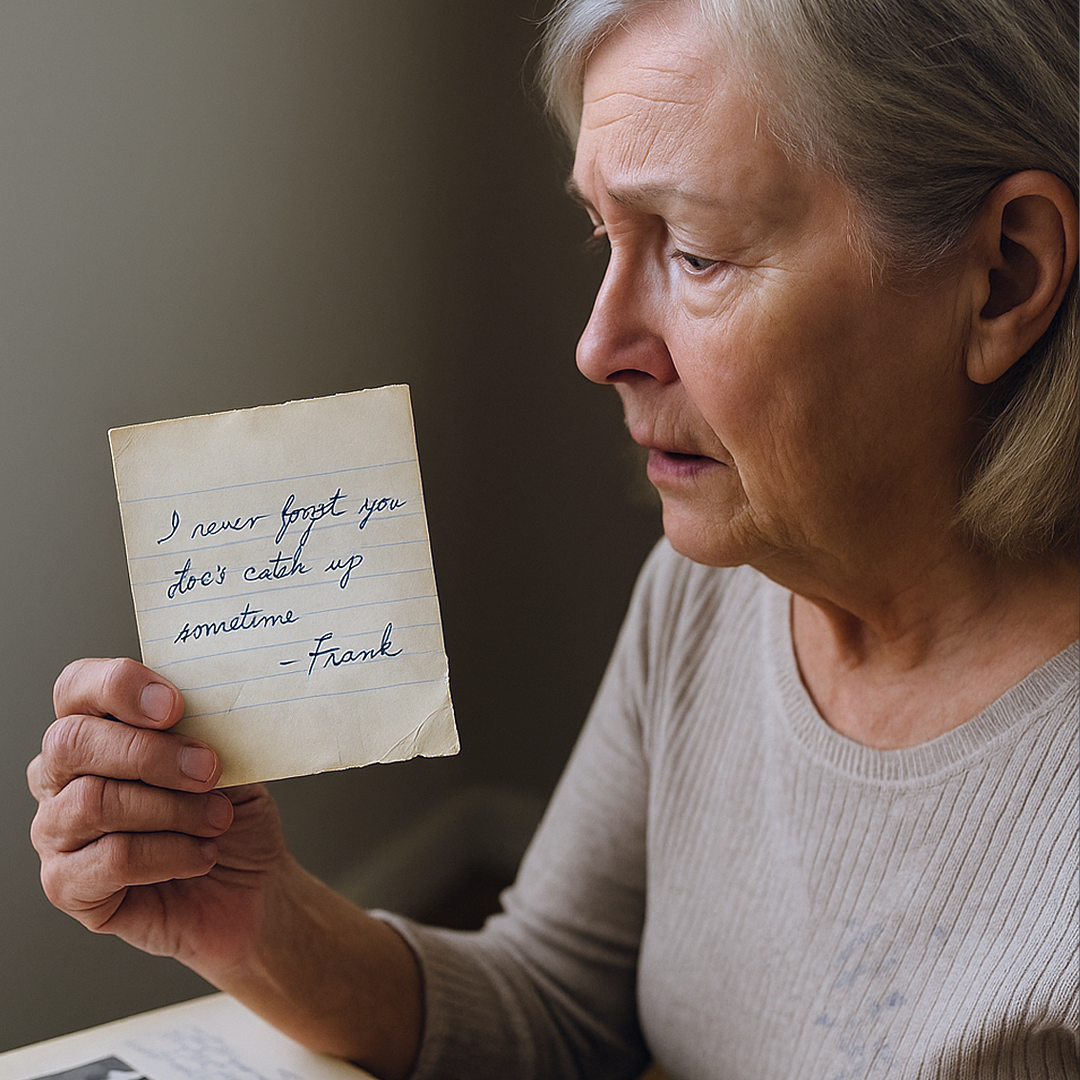 I never forgt you
doc's catch up
sometime
– Frank